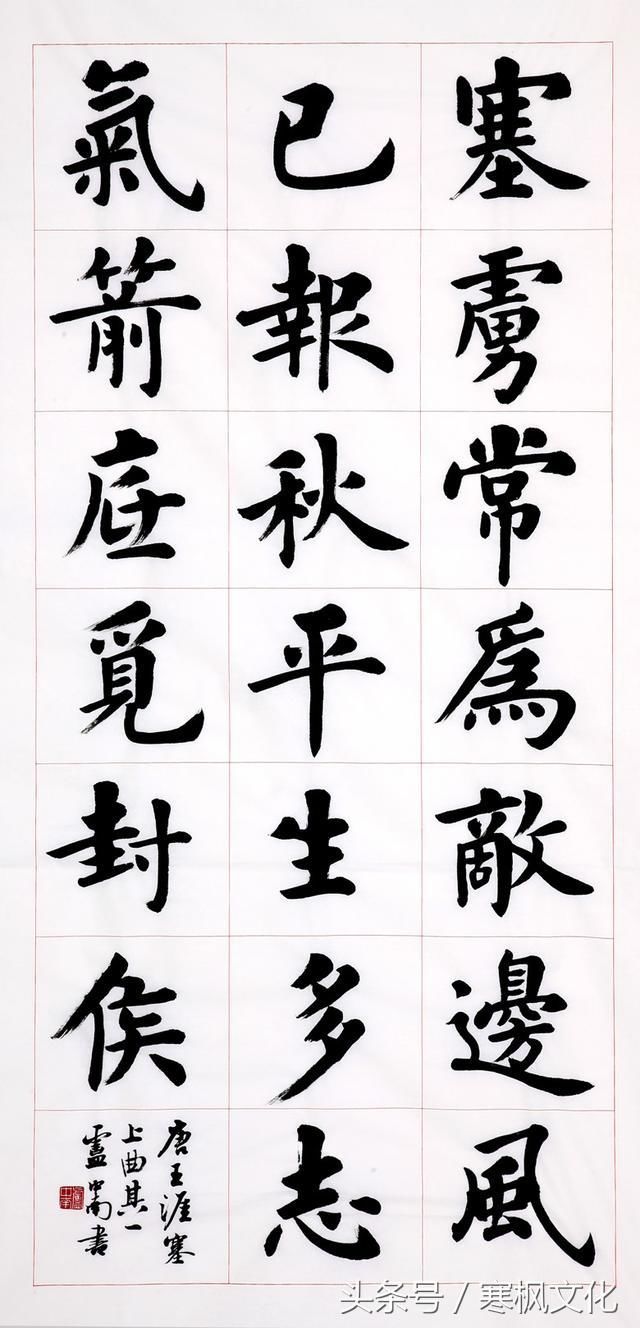 塞虜常為敵邊風
已報秋平生多志
氣箭底覓封侯
唐王涯塞
上曲其一
盧中南書
头条号 / 寒枫文化